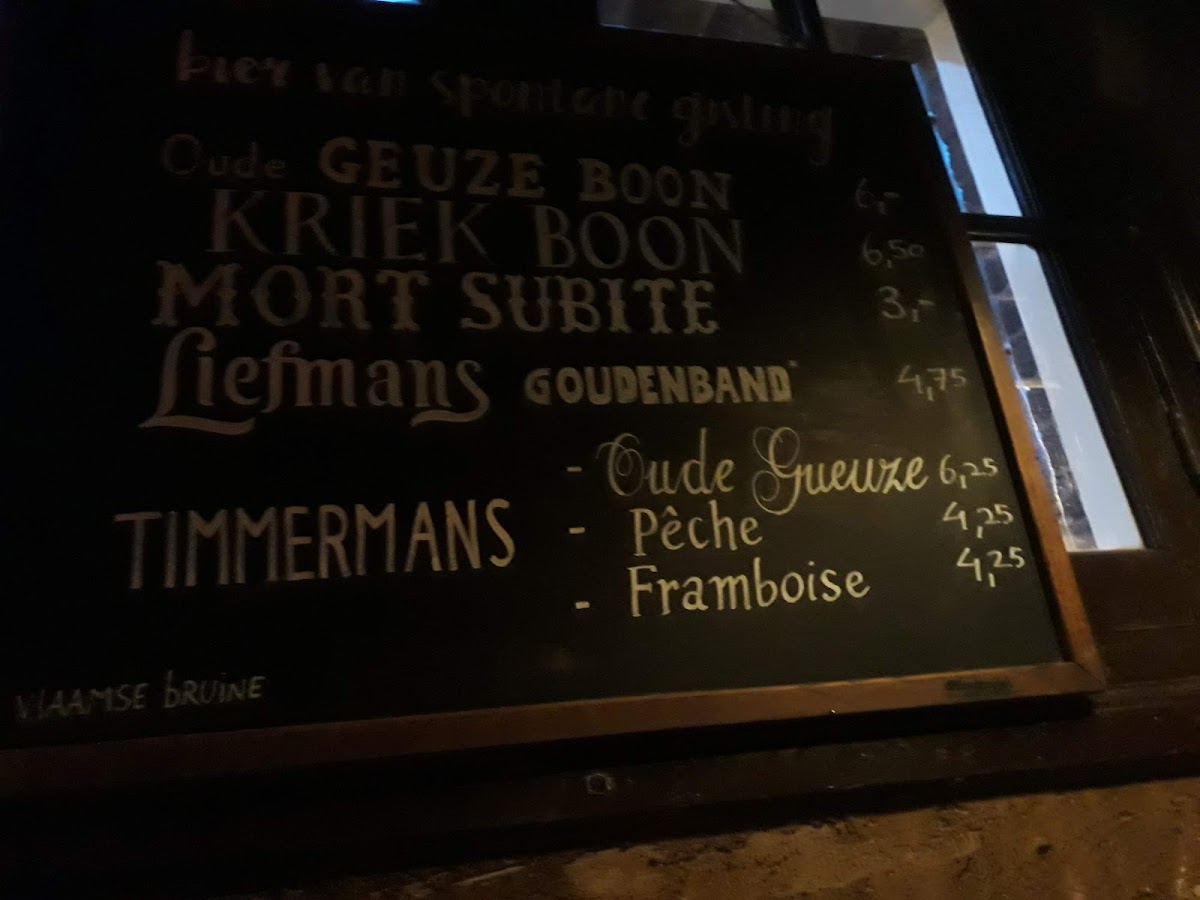 bier van spontane gisting
Oude GEUZE BOON 6,-
KRIEK BOON 6,50
MORT SUBITE 3,-
Liefmans GOUDENBAND* 4,75
- Oude Gueuze 6,25
TIMMERMANS - Pêche 4,25
- Framboise 4,25
VLAAMSE bRUINE